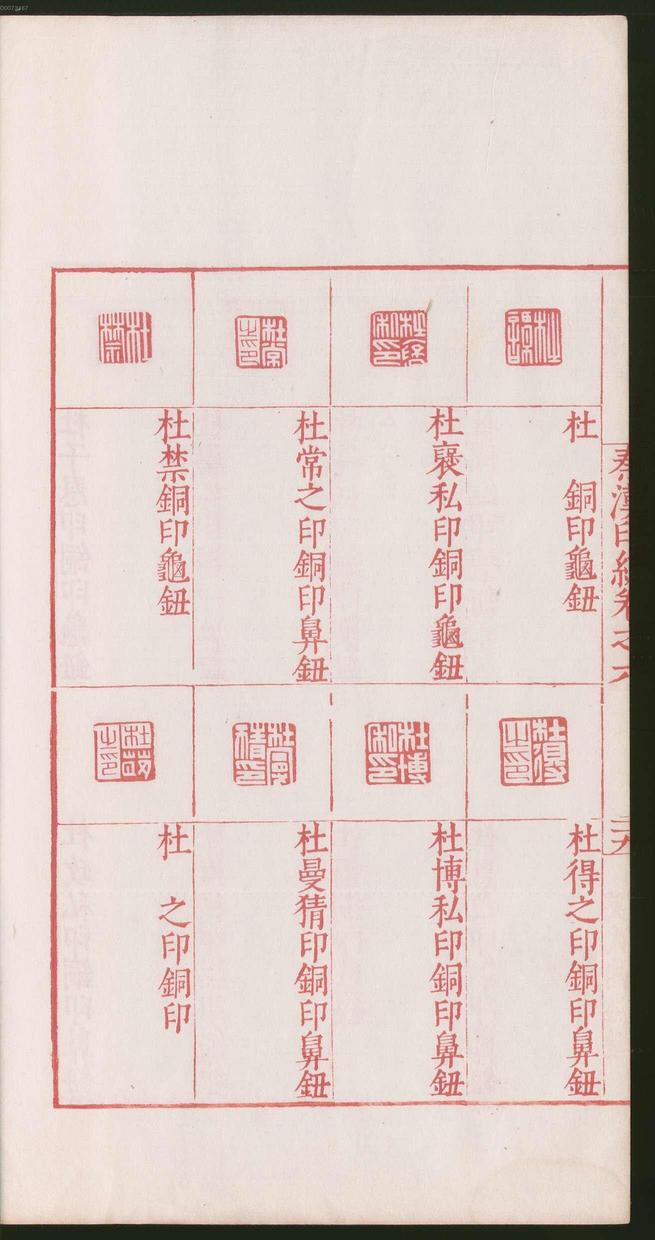 00073167
秦漢印統卷之六
二八
杜　銅印龜鈕
杜襃私印銅印龜鈕
杜常之印銅印鼻鈕
杜禁銅印龜鈕
杜得之印銅印鼻鈕
杜博私印銅印鼻鈕
杜曼猜印銅印鼻鈕
杜　之印銅印